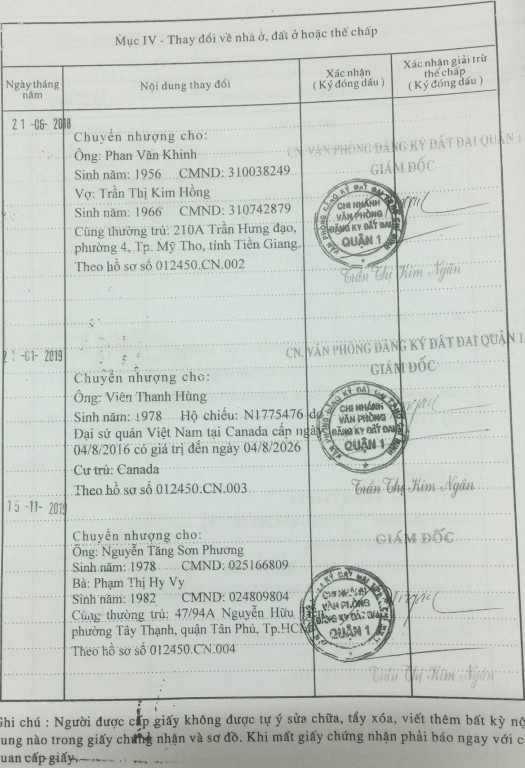 Mục IV - Thay đổi về nhà ở, đất ở hoặc thế chấp
Ngày tháng năm
Nội dung thay đổi
Xác nhận
(Ký đóng dấu)
Xác nhận giải trừ
thế chấp
(Ký đóng dấu)
21-05-2018
Chuyển nhượng cho:
Ông: Phan Văn Khinh
Sinh năm: 1956 CMND: 310038249
Vợ: Trần Thị Kim Hồng
Sinh năm: 1966 CMND: 310742879
Cùng thường trú: 210A Trần Hưng đạo,
phường 4, Tp. Mỹ Tho, tỉnh Tiền Giang.
Theo hồ sơ số 012450.CN.002
CN. VĂN PHÒNG ĐĂNG KÝ ĐẤT ĐAI QUẬN 1
GIÁM ĐỐC
CHI NHÁNH
VĂN PHÒNG
ĐĂNG KÝ ĐẤT ĐAI
QUẬN 1
Trần Thị Kim Ngân
-01-2019
Chuyển nhượng cho:
Ông: Viên Thanh Hùng
Sinh năm: 1978 Hộ chiếu: N1775476 do
Đại sứ quán Việt Nam tại Canada cấp ngày
04/8/2016 có giá trị đến ngày 04/8/2026
Cư trú: Canada
Theo hồ sơ số 012450.CN.003
CN. VĂN PHÒNG ĐĂNG KÝ ĐẤT ĐAI QUẬN 1
GIÁM ĐỐC
CHI NHÁNH
VĂN PHÒNG
ĐĂNG KÝ ĐẤT ĐAI
QUẬN 1
Trần Thị Kim Ngân
15-11-2019
Chuyển nhượng cho:
Ông: Nguyễn Tăng Sơn Phương
Sinh năm: 1978 CMND: 025166809
Bà: Phạm Thị Hy Vy
Sinh năm: 1982 CMND: 024809804
Cùng thường trú: 47/94A Nguyễn Hữu
phường Tây Thạnh, quận Tân Phú, Tp.HCM
Theo hồ sơ số 012450.CN.004
GIÁM ĐỐC
CHI NHÁNH
VĂN PHÒNG
ĐĂNG KÝ ĐẤT ĐAI
QUẬN 1
Trần Thị Kim Ngân
Ghi chú : Người được cấp giấy không được tự ý sửa chữa, tẩy xóa, viết thêm bất kỳ nộ
ung nào trong giấy chứng nhận và sơ đồ. Khi mất giấy chứng nhận phải báo ngay với c
quan cấp giấy.